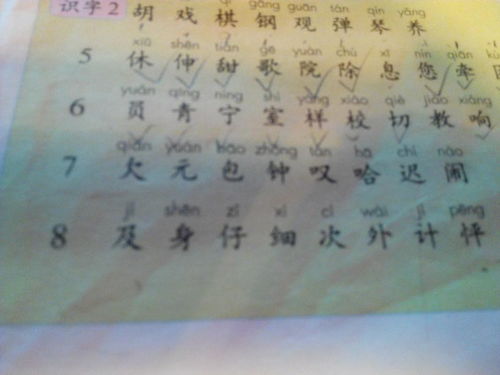 qí gāng guān tán qín yǎng
识字2 胡 戏 棋 钢 观 弹 琴 养
xiū shēn tián gē yuàn chú xī nín qiān
5 休 伸 甜 歌 院 除 息 您 牵
yuán qīng níng shì yàng xiào qiē jiāo xiǎng
6 员 青 宁 室 样 校 切 教 响
qiàn yuán bāo zhōng tàn hā chí nào
7 欠 元 包 钟 叹 哈 迟 闹
jí shēn zǐ xì cì wài jì pēng
8 及 身 仔 细 次 外 计 怦